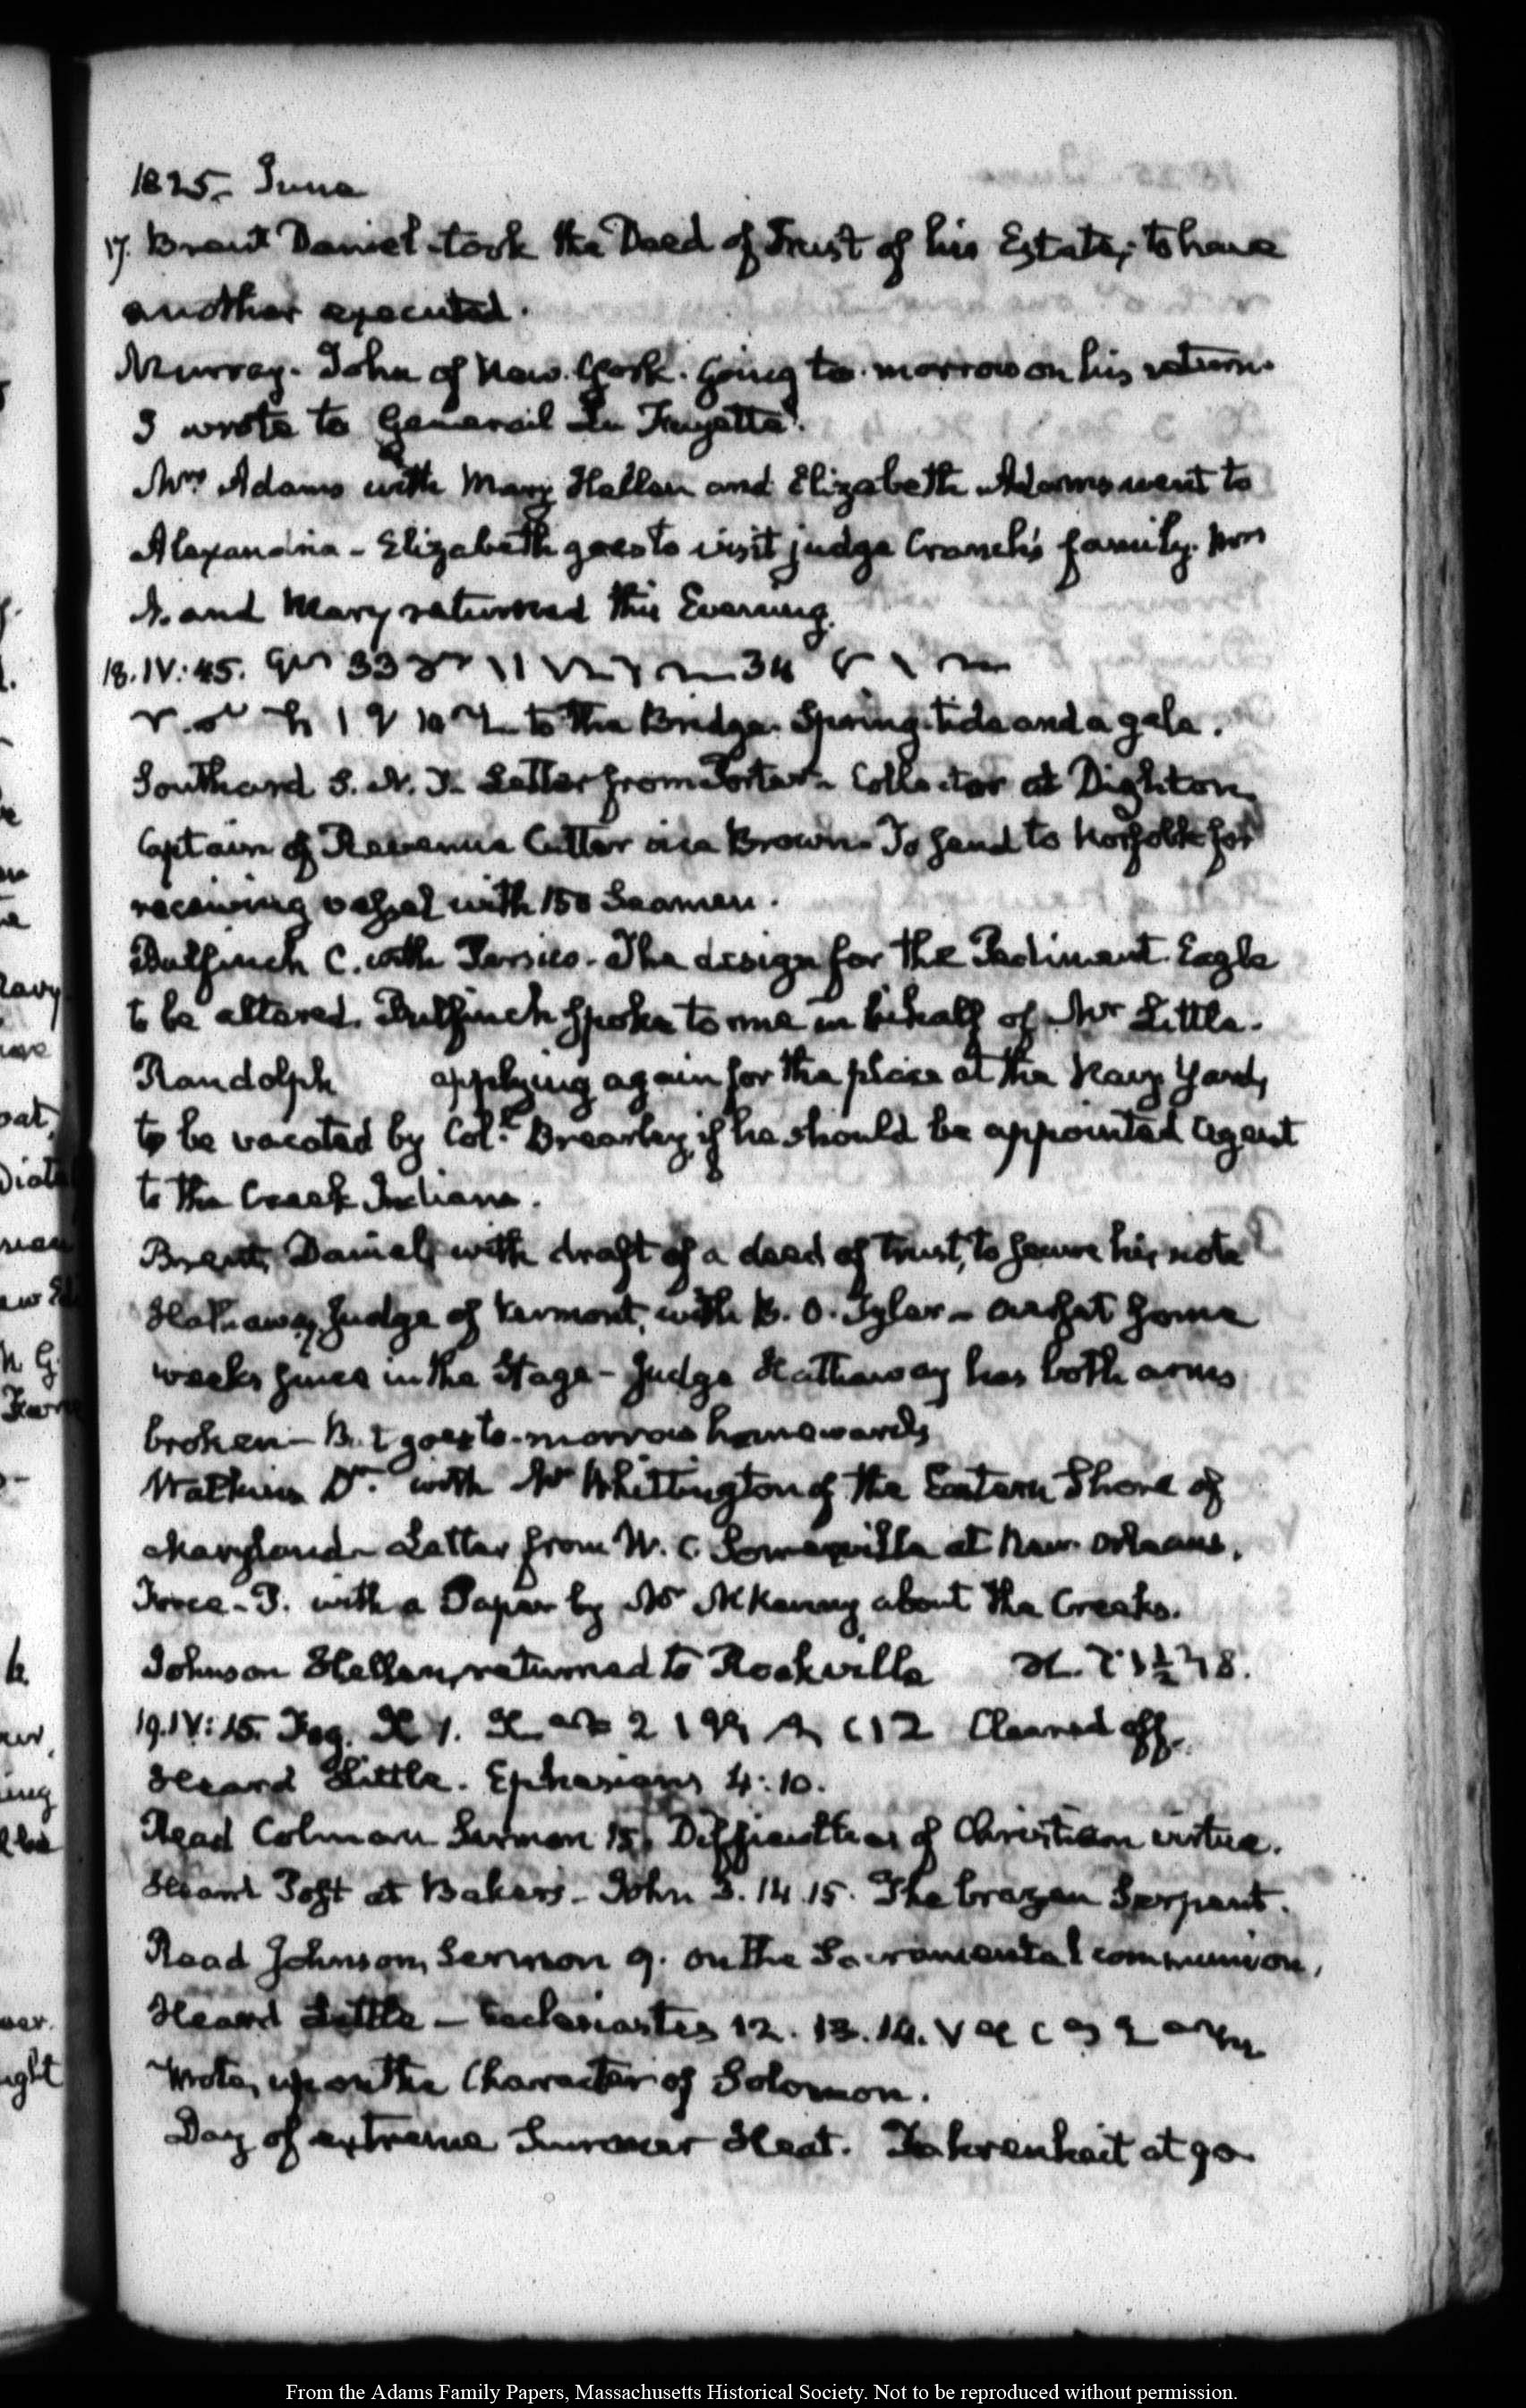 1825. June
17. Brent Daniel took the Deed of Trust of his Estate, to have
another executed.
Murray. John of New-York. Going to-morrow on his return.
I wrote to General La Fayette.
Mrs. Adams with Mary Hellen and Elizabeth Adams went to
Alexandria - Elizabeth goes to visit judge Cranch's family. Mrs
A. and Mary returned this Evening.
18. IV: 45. 33 34
to the Bridge. Spring-tide and a gale.
Southard S. N. D. Letter from Porter Collector at Dighton
Captain of Revenue Cutter vice Brown. To send to Norfolk for
receiving vessel with 150 Seamen.
Bulfinch C. with Persico. The design for the Pediment. Eagle
to be altered. Bulfinch spoke to me in behalf of Mr. Little.
Randolph applying again for the place at the Navy Yard,
to be vacated by Coll. Brearley, if he should be appointed Agent
to the Creek Indians.
Brent, Daniel, with draft of a deed of trust, to secure his note
Hathaway, Judge of Vermont, with B. O. Tyler - overset some
weeks since in the Stage - Judge Hathaway has both arms
broken - But goes to-morrow homewards
Watkins Dr. with Mr Whittington of the Eastern Shore of
Maryland - Letter from W. C. Somerville at New-Orleans.
Force - P. with a Paper by Mr McKenney about the Creeks.
Johnson Hellen, returned to Rockville
19. IV: 15. Fog. Cleared off.
Heard Little. Ephesians 4:10.
Read Colman Sermon 15. Difficulties of Christian virtue.
Heard Post at Baker's - John 3. 14. 15. The brazen Serpent.
Read Johnson, Sermon 9. on the Sacramental communion.
Heard Little - Ecclesiastes 12. 13. 14.
Wrote, upon the Character of Solomon.
Day of extreme Summer Heat. Fahrenheit at 90